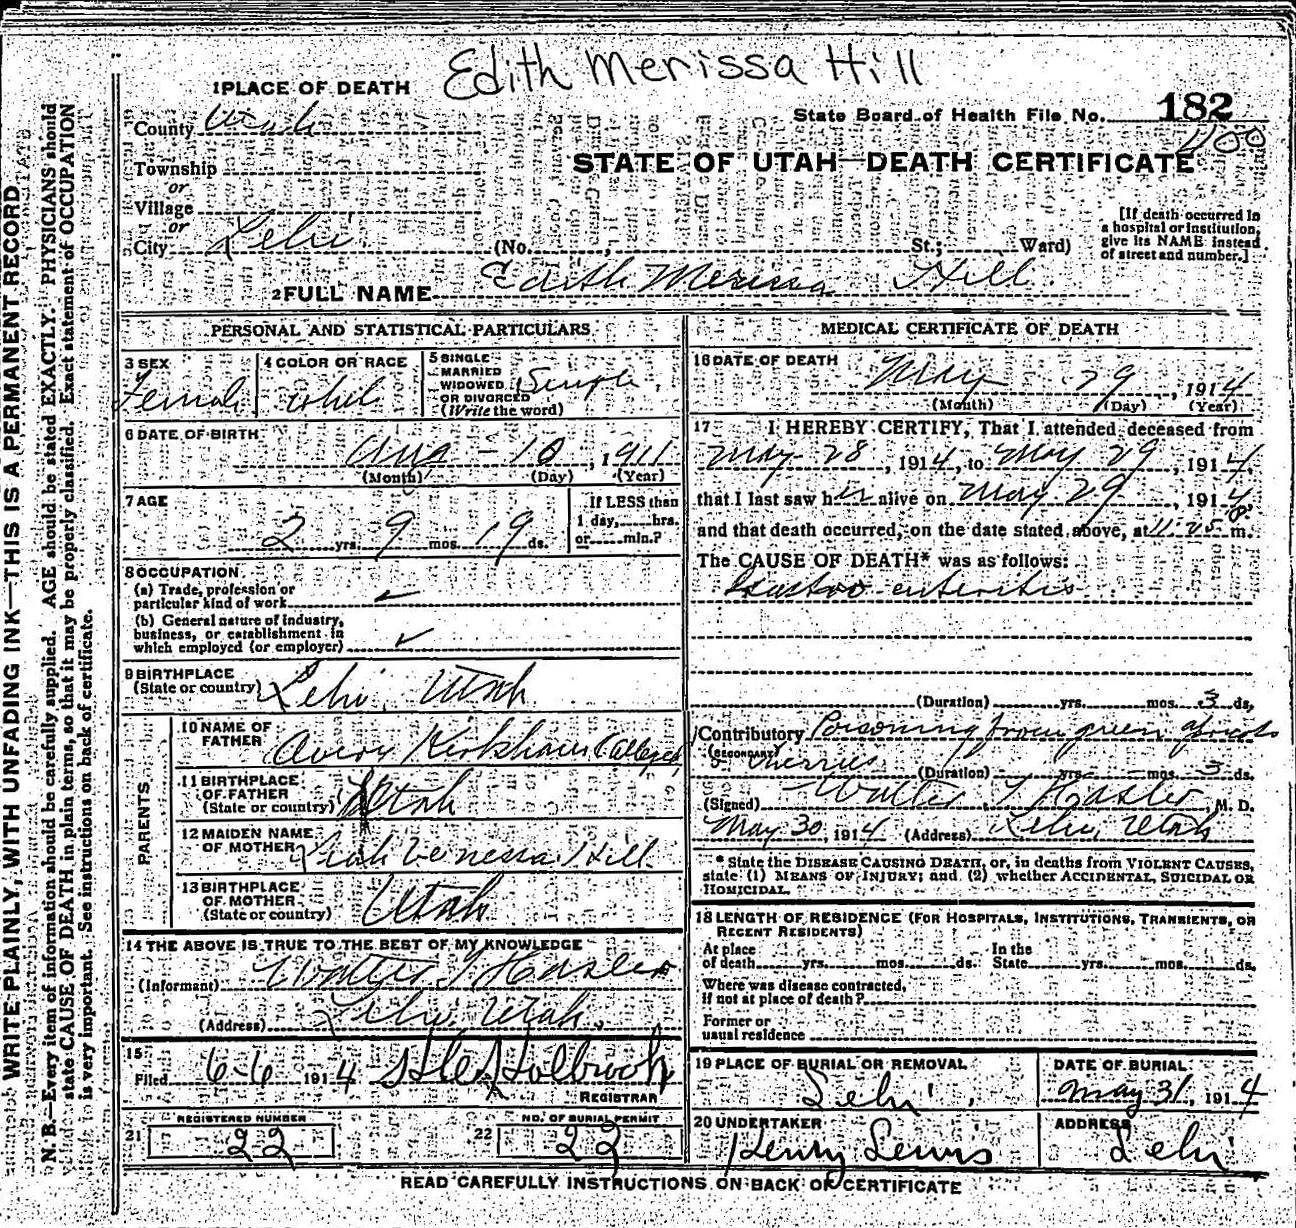 Edith Merissa Hill
1 PLACE OF DEATH
County Utah
State Board of Health File No. 182
400
Township
or
Village
or
City Lehi
STATE OF UTAH—DEATH CERTIFICATE
(No. St.; Ward)
[If death occurred in
a hospital or institution,
give its NAME instead
of street and number.]
2 FULL NAME Edith Merissa Hill
PERSONAL AND STATISTICAL PARTICULARS
3 SEX
Female
4 COLOR OR RACE
5 SINGLE
MARRIED
WIDOWED
OR DIVORCED
(Write the word)
Single
6 DATE OF BIRTH
Aug - 10, 1911
(Month) (Day) (Year)
7 AGE
2 yrs. 9 mos. 19 ds.
If LESS than
1 day, hrs.
or min.?
8 OCCUPATION
(a) Trade, profession or
particular kind of work
(b) General nature of industry,
business, or establishment in
which employed (or employer)
9 BIRTHPLACE
(State or country) Lehi, Utah
PARENTS
10 NAME OF
FATHER Avery Kirkham
11 BIRTHPLACE
OF FATHER
(State or country) Utah
12 MAIDEN NAME
OF MOTHER Hill.
13 BIRTHPLACE
OF MOTHER
(State or country) Utah
14 THE ABOVE IS TRUE TO THE BEST OF MY KNOWLEDGE
(Informant) Walter T Hasler
(Address) Lehi, Utah.
15
Filed 6-6 1914 Holbrook
REGISTRAR
REGISTERED NUMBER
21 22
NO. OF BURIAL PERMIT
22 22
MEDICAL CERTIFICATE OF DEATH
16 DATE OF DEATH
May 29, 1914
(Month) (Day) (Year)
17 I HEREBY CERTIFY, That I attended deceased from
May 28, 1914, to May 29, 1914,
that I last saw her alive on May 29, 1914,
and that death occurred, on the date stated above, at m.
The CAUSE OF DEATH* was as follows:
Gastro enteritis
(Duration) yrs. mos. 3 ds.
Contributory Poisoning from green
(SECONDARY) cherries
(Duration) yrs. mos. 3 ds.
(Signed) Walter T Hasler, M. D.
May 30, 1914 (Address) Lehi, Utah
* State the DISEASE CAUSING DEATH, or, in deaths from VIOLENT CAUSES,
state (1) MEANS OF INJURY; and (2) whether ACCIDENTAL, SUICIDAL OR
HOMICIDAL.
18 LENGTH OF RESIDENCE (FOR HOSPITALS, INSTITUTIONS, TRANSIENTS, OR
RECENT RESIDENTS)
At place
of death yrs. mos. ds.
In the
State yrs. mos. ds.
Where was disease contracted,
if not at place of death?
Former or
usual residence
19 PLACE OF BURIAL OR REMOVAL
Lehi.
DATE OF BURIAL
May 31, 1914
20 UNDERTAKER
Henry Lewis
ADDRESS
Lehi
READ CAREFULLY INSTRUCTIONS ON BACK OF CERTIFICATE
WRITE PLAINLY, WITH UNFADING INK—THIS IS A PERMANENT RECORD
N. B.—Every item of information should be carefully supplied. AGE should be stated EXACTLY. PHYSICIANS should
state CAUSE OF DEATH in plain terms, so that it may be properly classified. Exact statement of OCCUPATION
is very important. See instructions on back of certificate.